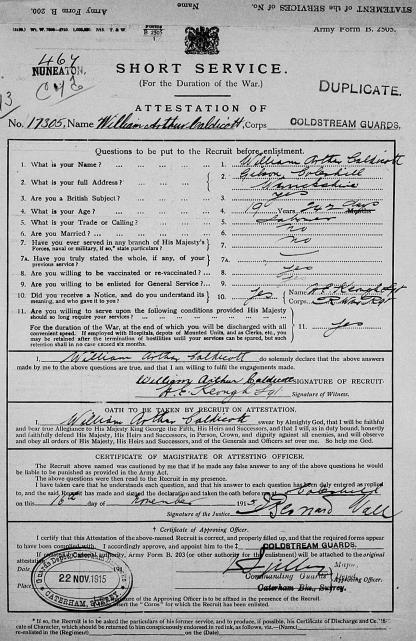 STATEMENT of the SERVICES of No. Name
Army Form B. 200.
Army Form B. 2505.
B 2505
1
467
NUNEATON.
SHORT SERVICE.
(For the Duration of the War.)
DUPLICATE.
ATTESTATION OF
No. 17305. Name William Arthur Caldicott, Corps COLDSTREAM GUARDS.
Questions to be put to the Recruit before enlistment.
1. What is your Name? ... 1. William Arthur Caldicott
2. What is your full Address? ... 2. Gilson, Coleshill
Warwickshire
3. Are you a British Subject? ... 3. Yes
4. What is your Age? ... 4. 19 Years Days Months
5. What is your Trade or Calling? ... 5.
6. Are you Married? ... 6. No
7. Have you ever served in any branch of His Majesty's
Forces, naval or military, if so,* state particulars? 7. No
7A. Have you truly stated the whole, if any, of your
previous service? 7A.
8. Are you willing to be vaccinated or re-vaccinated? ... 8. Yes
9. Are you willing to be enlisted for General Service? ... 9. Yes
10. Did you receive a Notice, and do you understand its
meaning, and who gave it to you? 10. Yes Name A.E. Keough Sgt
Corps R. War. Rgt
11. Are you willing to serve upon the following conditions provided His Majesty
should so long require your services?
For the duration of the War, at the end of which you will be discharged with all
convenient speed. If employed with Hospitals, depots of Mounted Units, and as Clerks, etc., you
may be retained after the termination of hostilities until your services can be spared, but such
retention shall in no case exceed six months. 11. Yes
I, William Arthur Caldicott do solemnly declare that the above answers
made by me to the above questions are true, and that I am willing to fulfil the engagements made.
William Arthur Caldicott SIGNATURE OF RECRUIT.
A.E. Keough Sgt. Signature of Witness.
OATH TO BE TAKEN BY RECRUIT ON ATTESTATION.
I, William Arthur Caldicott swear by Almighty God, that I will be faithful
and bear true Allegiance to His Majesty King George the Fifth, His Heirs and Successors, and that I will, as in duty bound, honestly
and faithfully defend His Majesty, His Heirs and Successors, in Person, Crown, and dignity against all enemies, and will observe
and obey all orders of His Majesty, His Heirs and Successors, and of the Generals and Officers set over me. So help me God.
CERTIFICATE OF MAGISTRATE OR ATTESTING OFFICER.
The Recruit above named was cautioned by me that if he made any false answer to any of the above questions he would
be liable to be punished as provided in the Army Act.
The above questions were then read to the Recruit in my presence.
I have taken care that he understands each question, and that his answer to each question has been duly entered as replied
to, and the said Recruit has made and signed the declaration and taken the oath before me at Coleshill
on this 16th day of November 1915
Signature of the Justice
† Certificate of Approving Officer.
I certify that this Attestation of the above-named Recruit is correct, and properly filled up, and that the required forms appear
to have been complied with. I accordingly approve, and appoint him to the COLDSTREAM GUARDS.
Date 191
22 NOV. 1915
CATERHAM, SURREY
Major,
Commanding Guards Depot
Caterham Bks., Surrey.
† The Signature of the Approving Officer is to be affixed in the presence of the Recruit.